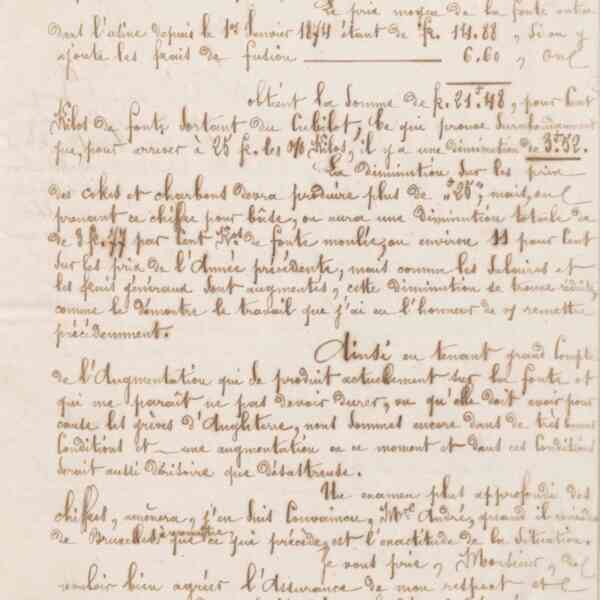 Le prix moyen de la fonte entrée
dans l'usine depuis le 1er Janvier 1874 étant de fr. 14.88, Si on y
ajoute les frais de fusion 6.60, on
obtient la Somme de fr. 21.48, pour Cent
Kilos de fonte sortant du Cubilot, Ce qui prouve surabondamment
que, pour arriver à 25 fr. les % Kilos, il y a une diminution de 3.52.
La Diminution sur les prix
des cokes et charbons devra produire plus de "25", mais, en
prenant ce chiffre pour bâse, on aura une diminution totale de
de 3 fr. 77 par Cent Kos de fonte moulée, ou environ 11 pour Cent
Sur les prix de l'Année précédente, mais comme les Salaires et
les frais généraux sont augmentés, cette diminution se trouve réduite,
comme le démontre le travail que j'ai eu l'honneur de vs remettre
précédemment.
Ainsi en tenant grand Compte
de l'Augmentation qui se produit actuellement sur la fonte et
qui me paraît ne pas devoir durer, vu qu'elle doit avoir pour
cause les grèves d'Angleterre, nous sommes encore dans de très bonnes
Conditions et une augmentation en ce moment et dans ces Conditions
serait aussi dérisoire que désastreuse.
Un examen plus approfondi des
chiffres, amènera, j'en suis Convaincu, Mr André, quand il reviendra
de Bruxelles, à reconnaître que ce qui précède, est l'exactitude de la Situation.
Je vous prie, Monsieur, de
vouloir bien agréer l'Assurance de mon respect et